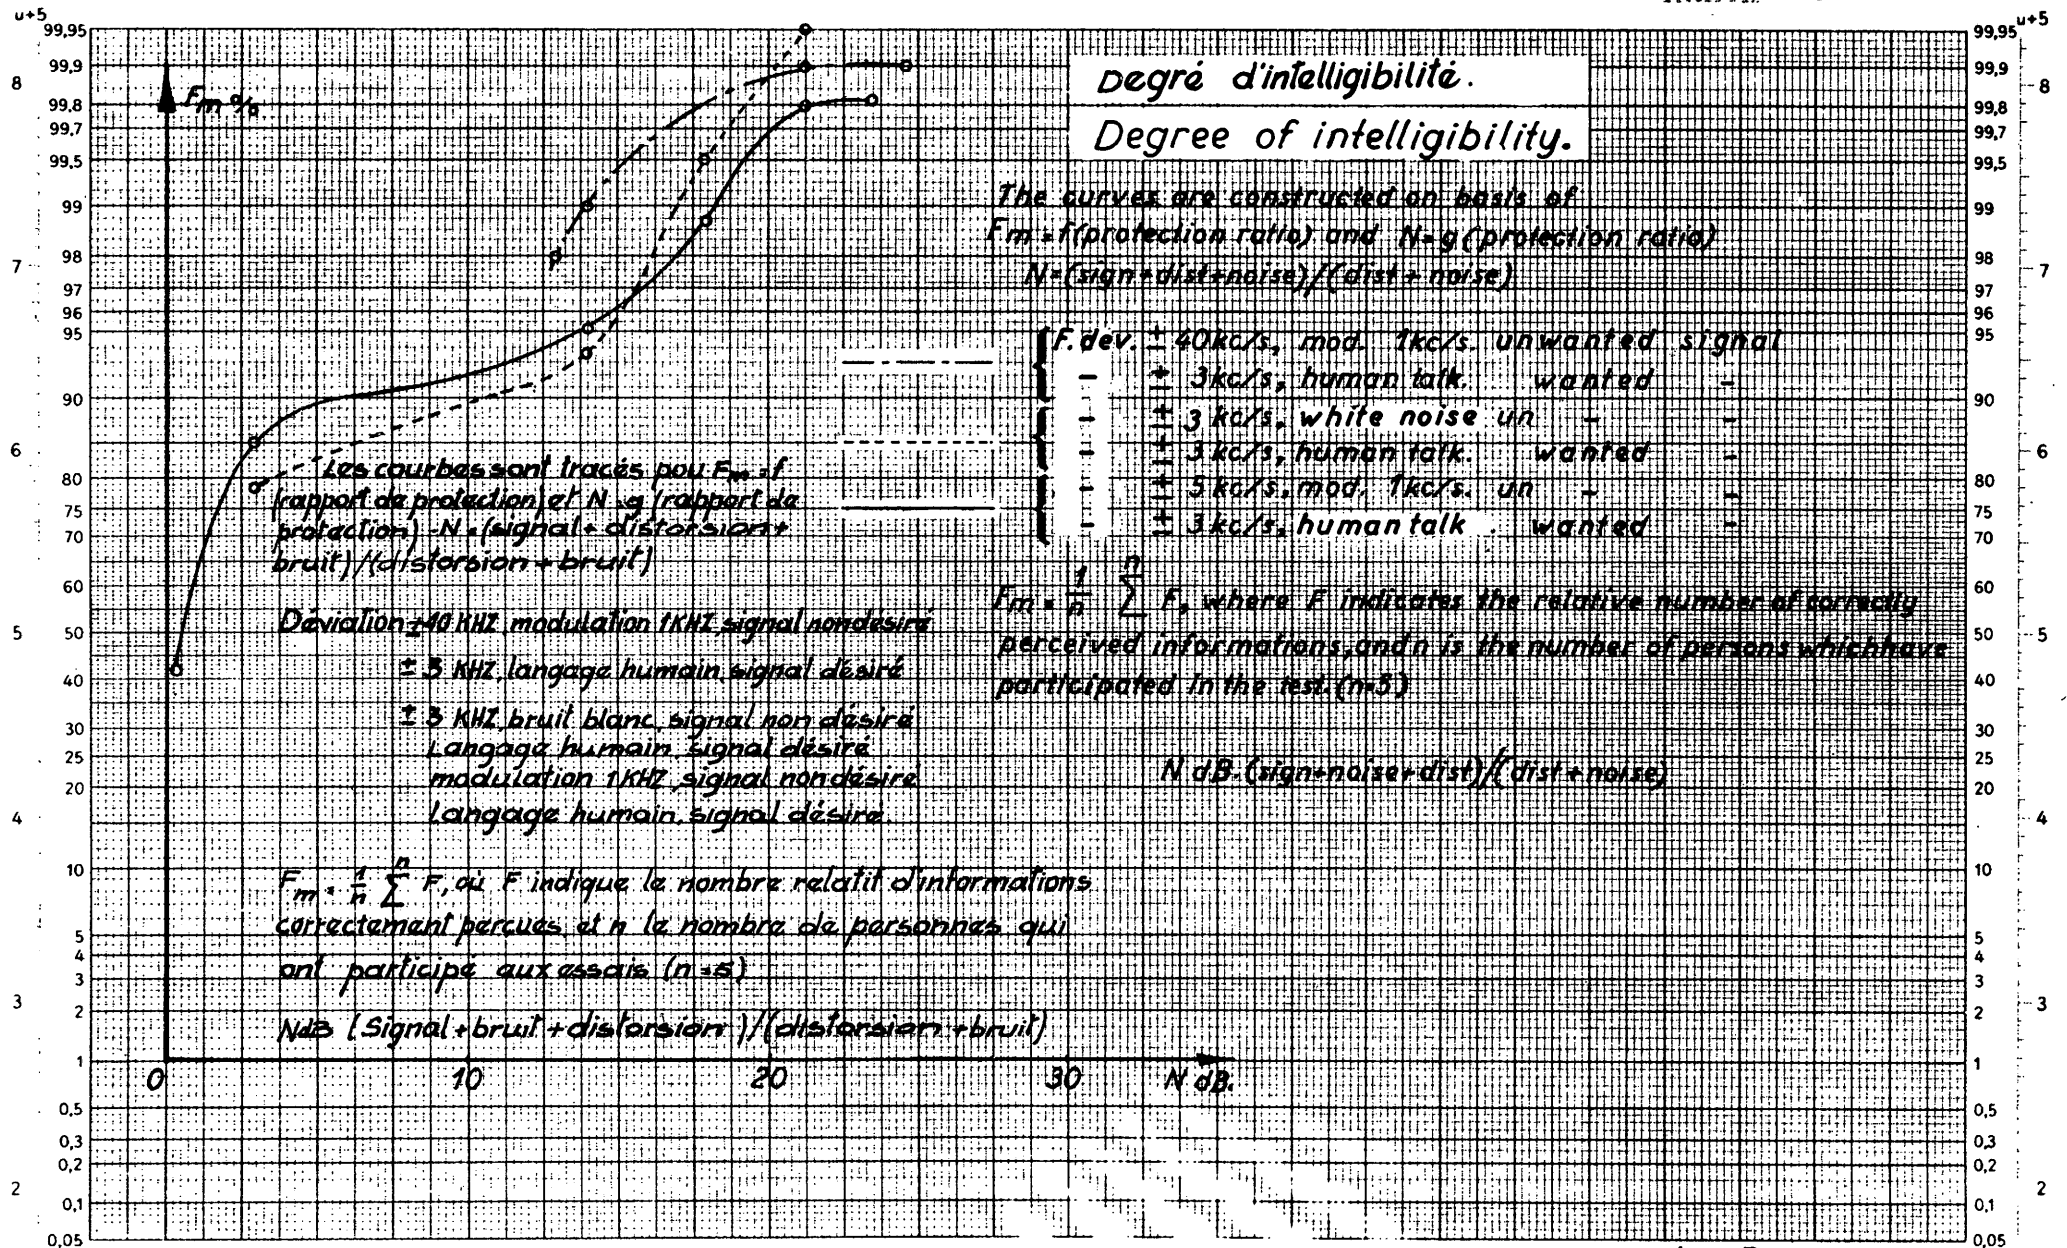 u+5
u+5
99,95
99,9
99,8
99,7
99,5
99
98
97
96
95
90
80
75
70
60
50
40
30
25
20
10
5
4
3
2
1
0,5
0,3
0,2
0,1
0,05
8
7
6
5
4
3
2
Fm %
Degré d'intelligibilité.
Degree of intelligibility.
The curves are constructed on basis of
Fm = f(protection ratio) and N=g (protection ratio)
N=(sign+dist+noise)/(dist + noise)
F. dev. ± 40kc/s, mod. 1kc/s. unwanted signal
- ± 3kc/s, human talk. wanted -
- ± 3 kc/s, white noise un - -
- ± 3kc/s, human talk. wanted -
- ± 5 kc/s, mod. 1kc/s. un - -
- ± 3kc/s, human talk . wanted -
Fm = 1/n Σ n F, where F indicates the relative number of correctly
perceived informations, and n is the number of persons which have
participated in the test. (n=5)
N dB. (sign+noise+dist)/(dist + noise)
Les courbes sont tracés pou Fm = f
(rapport de protection) et N = g (rapport de
protection) - N = (signal + distorsion +
bruit)/(distorsion + bruit)
Déviation ±40 KHZ, modulation 1KHZ, signal non désiré
± 3 KHZ, langage humain, signal désiré
± 3 KHZ, bruit blanc, signal non désiré
Langage humain, signal désiré
modulation 1 KHZ, signal non désiré
Langage humain, signal désiré.
Fm = 1/n Σ n F, où F indique le nombre relatif d'informations
correctement perçues, et n le nombre de personnes qui
ont participé aux essais (n = 5)
NdB (Signal + bruit + distorsion)/(distorsion + bruit)
0 10 20 30 N dB.
99,95
99,9
99,8
99,7
99,5
99
98
97
96
95
90
80
75
70
60
50
40
30
25
20
10
5
4
3
2
1
0,5
0,3
0,2
0,1
0,05
8
7
6
5
4
3
2